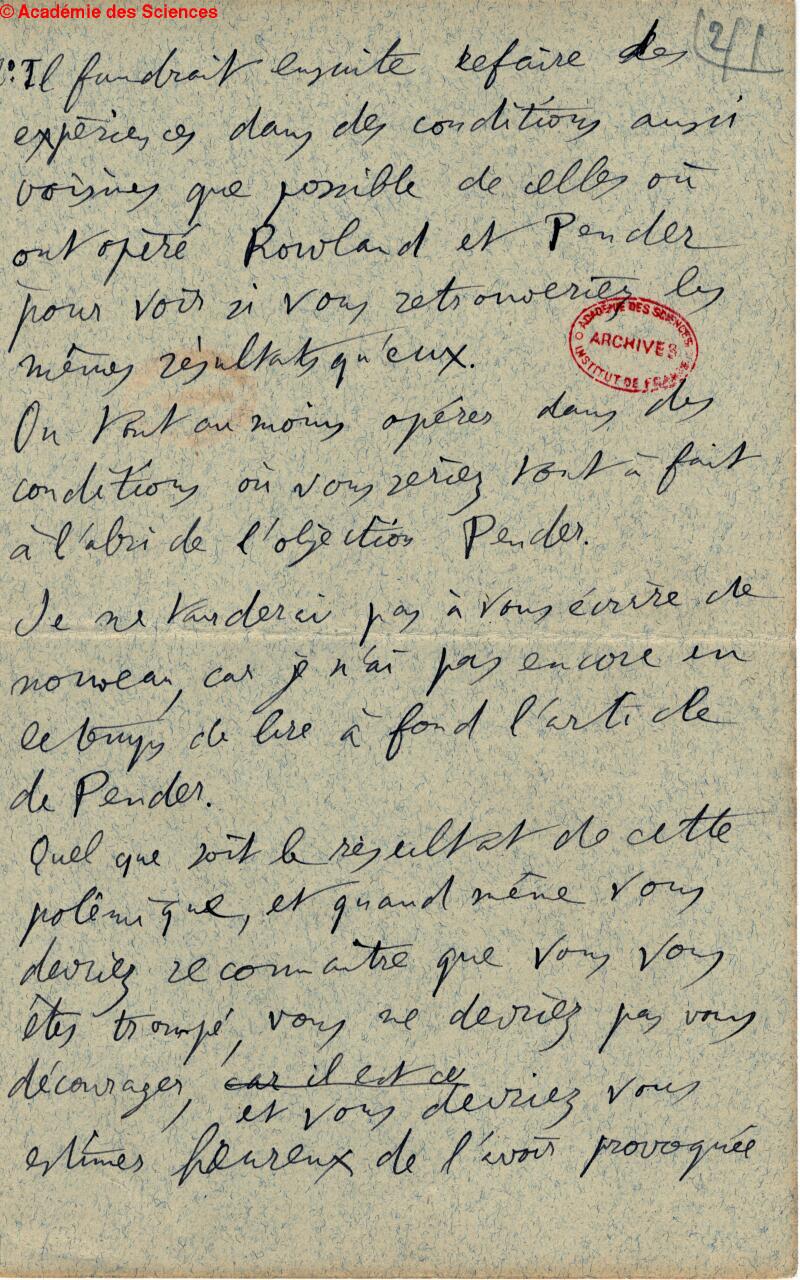 © Académie des Sciences
21
2°: Il faudrait ensuite refaire des
expériences dans des conditions aussi
voisines que possible de celles où
ont opéré Rowland et Pender
pour voir si vous retrouveriez les
mêmes résultats qu'eux.
ACADÉMIE DES SCIENCES
ARCHIVES
INSTITUT DE FRANCE
Ou tout au moins opérer dans des
conditions où vous seriez tout à fait
à l'abri de l'objection Pender.
Je ne tarderai pas à vous écrire de
nouveau, car je n'ai pas encore eu
le temps de lire à fond l'article
de Pender.
Quel que soit le résultat de cette
polémique, et quand même vous
devriez reconnaître que vous vous
êtes trompé, vous ne devriez pas vous
décourager, car il est ce
et vous devriez vous
estimer heureux de l'avoir provoquée